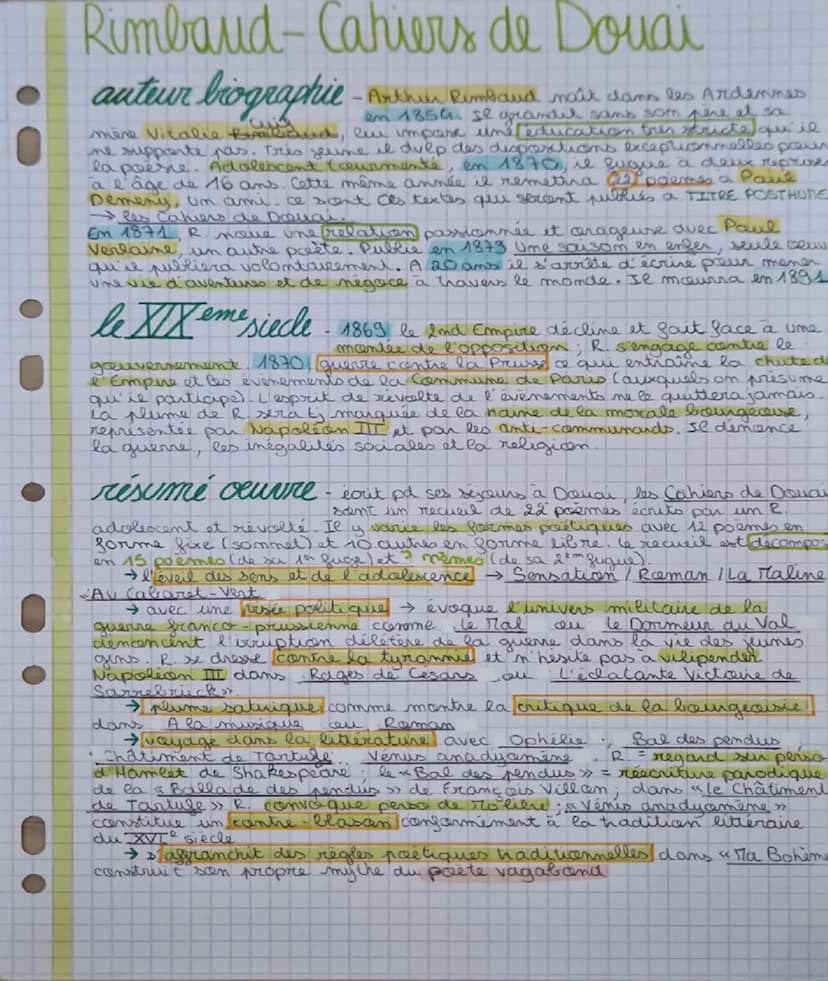 Rimbaud - Cahiers de Douai
auteur biographie - Arthur Rimbaud naît dans les Ardennes
en 1854. Il grandit sans son père et sa
mère Vitalie Rimbaud, Cuif lui impose une éducation très stricte qu'il
ne supporte pas. Très jeune il dvlp des dispositions exceptionnelles pour
la poésie. Adolescent tourmenté, en 1870, il fugue à deux reprises
à l'âge de 16 ans. Cette même année il remettra 22 poèmes à Paul
Demeny, un ami. ce sont ces textes qui seront publiés à TITRE POSTHUME
→ les Cahiers de Douai.
En 1871, R. noue une relation passionnée et orageuse avec Paul
Verlaine, un autre poète. Publie en 1873 Une saison en enfer, seule oeuv
qu'il publiera volontairement. A 20 ans il s'arrête d'écrire pour mener
une vie d'aventures et de négoce à travers le monde. Il mourra en 1891
le XIXème siècle - 1869 le 2nd Empire décline et fait face à une
montée de l'opposition ; R. s'engage contre le
gouvernement. 1870, guerre contre la Prusse ce qui entraîne la chute d
l'Empire et les évènements de la Commune de Paris (auxquels on présume
qu'il participe). L'esprit de révolte de l'évènements ne le quittera jamais.
La plume de R. sera tj marquée de la haine de la morale bourgeoise,
représentée par Napoléon III et par les anti-communards. Il dénonce
la guerre, les inégalités sociales et la religion.
résumé oeuvre - écrit pd ses séjours à Douai, les Cahiers de Douai
sont un recueil de 22 poèmes écrits par un R.
adolescent et révolté. Il y varie les formes poétiques avec 12 poèmes en
forme fixe (sonnet) et 10 autres en forme libre. Le recueil est décompos
en 15 poèmes (de sa 1re fugue) et 7 poèmes (de sa 2ème fugue).
→ l'éveil des sens et de l'adolescence → Sensation / Roman / La Maline
Au Cabaret-Vert
→ avec une visée politique → évoque l'univers militaire de la
guerre franco-prussienne comme Le Mal ou Le Dormeur du Val
dénoncent l'irruption délétère de la guerre dans la vie des jeunes
gens. R. se dresse contre la tyrannie et n'hésite pas à vilipender
Napoléon III dans Rages de Césars ou L'éclatante Victoire de
Sarrebrück».
→ plume satirique comme montre la critique de la bourgeoisie
dans A la musique ou Roman
→ voyage dans la littérature avec Ophélie ; Bal des pendus
Châtiment de Tartufe Vénus anadyomène R. = regard sur perso
d'Hamlet de Shakespeare ; le «Bal des pendus» = réécriture parodique
de la «Ballade des pendus» de François Villon ; dans «Le Châtiment
de Tartufe» R. convoque perso de Molière ; «Vénus anadyomène»
constitue un contre-blason conformément à la tradition littéraire
du XVIe siècle
→ s'affranchit des règles poétiques traditionnelles dans «Ma Bohème
construit son propre mythe du poète vagabond